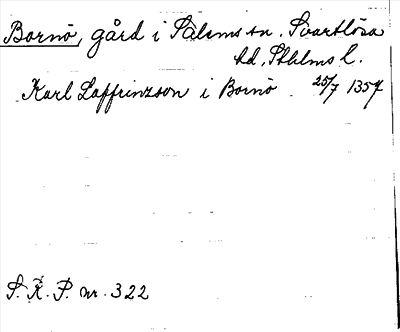 Bornö, gård i Salems sn. Svartlösa
hd, Sthlms l.
Karl Laffrinzson i Bornö 25/7 1357
S. R. P. nr. 322